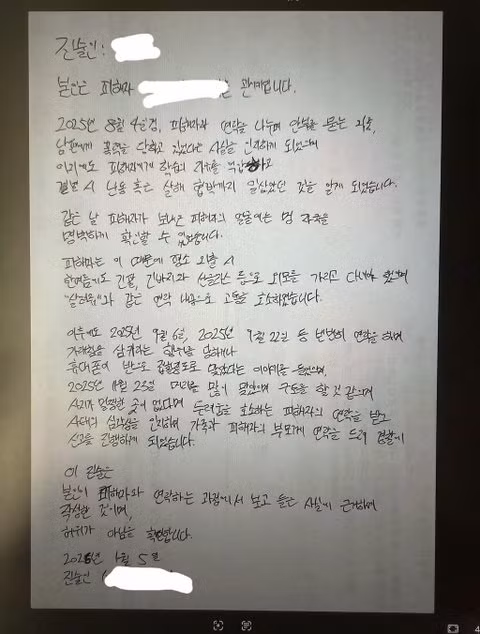 진술인:
본인은 피해자 관계입니다.
2025년 8월 4일경, 피해자와 연락을 나누며 안부를 묻는 과정,
남편에게 폭력을 당하고 있었다는 사실을 인지하게 되었으며
이외에도 피해자에게 하고
결별 시 난동 혹은 살해 협박까지 일삼았던 것을 알게 되었습니다.
같은 날 피해자가 보내온 피해자의 얼굴에는 멍 자국을
명백하게 확인할 수 있었습니다.
피해자는 이 때문에 평소 외출 시
한여름에도 긴팔, 긴바지와 선글라스 등으로 외모를 가리고 다녀야 했으며
"살려줘"와 같은 연락 내용으로 고통을 호소하였습니다.
이후에도 2025년 9월 6일, 2025년 9월 22일 등 빈번히 연락을 하며
삼키라는 당하거나
휴대폰이 반으로 정도로 맞았다는 이야기를 들었으며,
2025년 11월 25일 머리를 많이 맞았으며 구토를 할 것 같으며
사지가 멀쩡한 곳이 없다며 두려움을 호소하는 피해자의 연락을 받고
사태의 심각성을 인지하여 가족과 피해자의 부모께 연락을 드려 경찰에
신고를 진행하게 되었습니다.
이 진술은
본인이 피해자와 연락하는 과정에서 보고 들은 사실에 근거하여
작성한 것이며,
허위가 아님을 확인합니다.
2026년 1월 5일
진술인 (